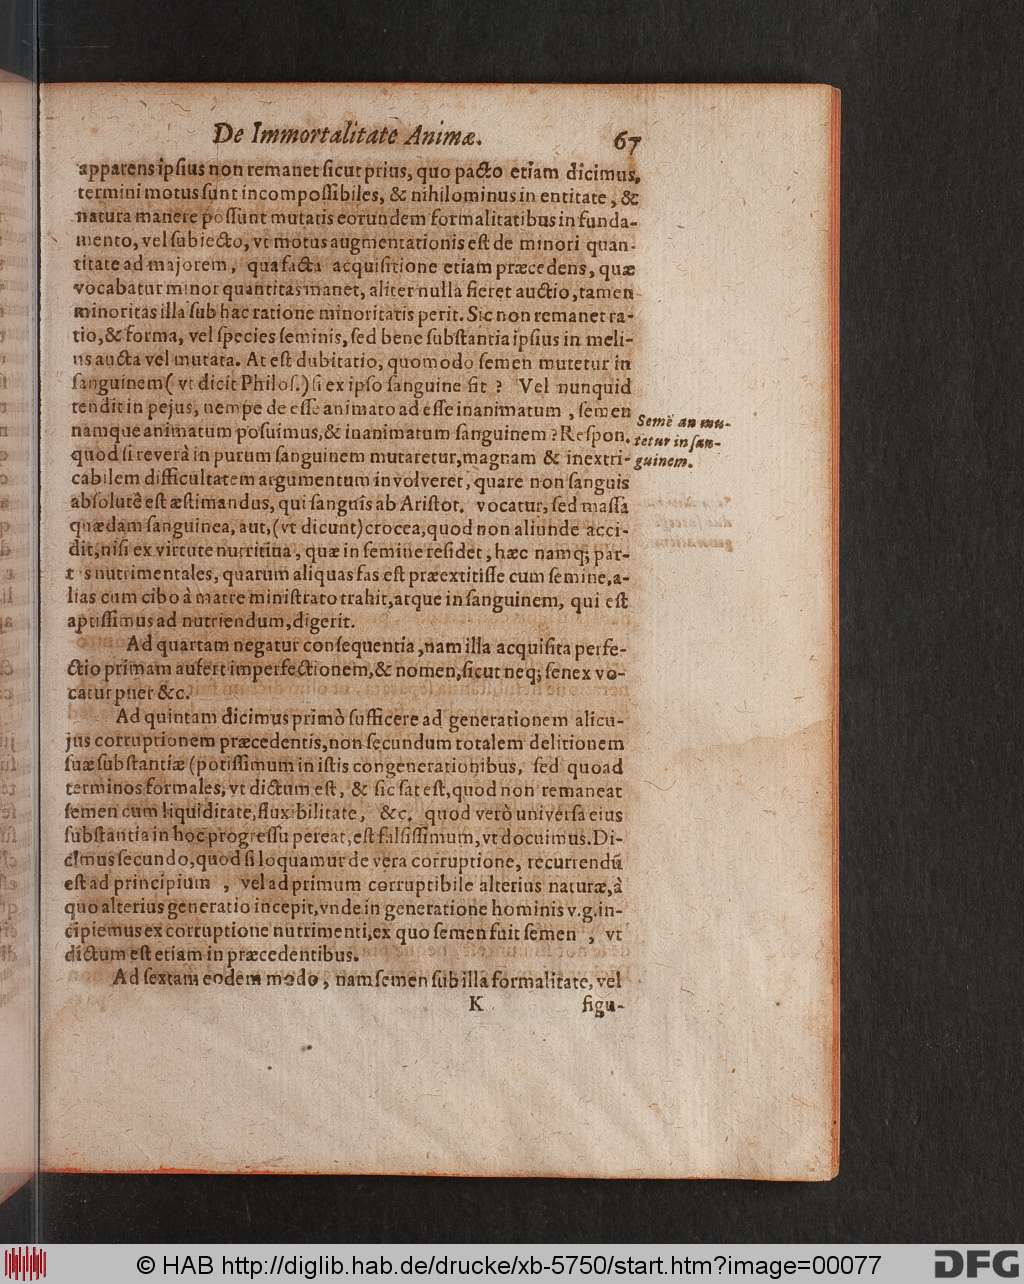 De Immortalitate Animæ. 67
apparens ipſius non remanet ſicut prius, quo pacto etiam dicimus,
termini motus ſunt incompoſſibiles, & nihilominus in entitate, &
natura manere poſſunt mutatis eorundem formalitatibus in funda-
mento, vel ſubiecto, vt motus augmentationis eſt de minori quan-
titate ad majorem, qua facta acquiſitione etiam præcedens, quæ
vocabatur minor quantitas manet, aliter nulla fieret auctio, tamen
minoritas illa ſub hac ratione minoritatis perit. Sic non remanet ra-
tio, & forma, vel ſpecies ſeminis, ſed bene ſubſtantia ipſius in meli-
us aucta vel mutata. At eſt dubitatio, quomodo ſemen mutetur in
ſanguinem (vt dicit Philoſ.) ſi ex ipſo ſanguine fit? Vel nunquid
tendit in pejus, nempe de eſſe animato ad eſſe inanimatum, ſemen
namque animatum poſuimus, & inanimatum ſanguinem? Reſpon.
Semẽ an mu-
tetur in ſan-
guinem.
quod ſi reverà in purum ſanguinem mutaretur, magnam & inextri-
cabilem difficultatem argumentum involveret, quare non ſanguis
abſolutè eſt æſtimandus, qui ſanguis ab Ariſtot. vocatur, ſed maſſa
quædam ſanguinea, aut, (vt dicunt) crocea, quod non aliunde acci-
dit, niſi ex virtute nutritiua, quæ in femine reſidet, hæc namq; par-
tes nutrimentales, quarum aliquas fas eſt præextitiſſe cum ſemine, a-
lias cum cibo à matre miniſtrato trahit, atque in ſanguinem, qui eſt
aptiſſimus ad nutriendum, digerit.
Ad quartam negatur conſequentia, nam illa acquiſita perfe-
ctio primam aufert imperfectionem, & nomen, ſicut neq; ſenex vo-
catur puer &c.
Ad quintam dicimus primò ſufficere ad generationem alicu-
jus corruptionem præcedentis, non ſecundum totalem delitionem
ſuæ ſubſtantiæ (potiſſimum in iſtis congenerationibus, ſed quoad
terminos formales, vt dictum eſt, & ſic fat eſt, quod non remaneat
ſemen cum liquiditate, fluxibilitate, &c, quod verò univerſa eius
ſubſtantia in hoc progreſſu pereat, eſt falſiſſimum, vt docuimus. Di-
cimus ſecundo, quod ſi loquamur de vera corruptione, recurrendũ
eſt ad principium, vel ad primum corruptibile alterius naturæ, à
quo alterius generatio incepit, vnde in generatione hominis v.g. in-
cipiemus ex corruptione nutrimenti, ex quo ſemen fuit ſemen, vt
dictum eſt etiam in præcedentibus.
Ad ſextam eodem modo, nam ſemen ſub illa formalitate, vel
K figu-
© HAB http://diglib.hab.de/drucke/xb-5750/start.htm?image=00077
DFG